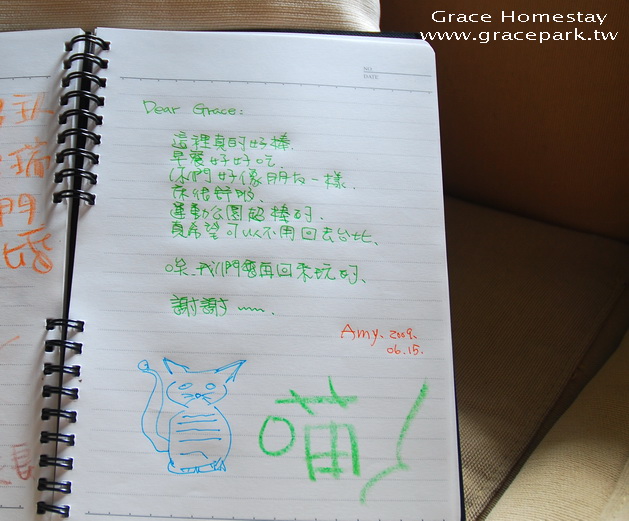 Grace Homestay
www.gracepark.tw
NO.
DATE
Dear Grace:
這裡真的好棒.
早餐好好吃.
你們好像朋友一樣.
床很舒服.
運動公園超棒的.
真希望可以不用回去台北.
唉.我們會再回來玩的.
謝謝~~.
Amy. 2009.
06.15.
喵